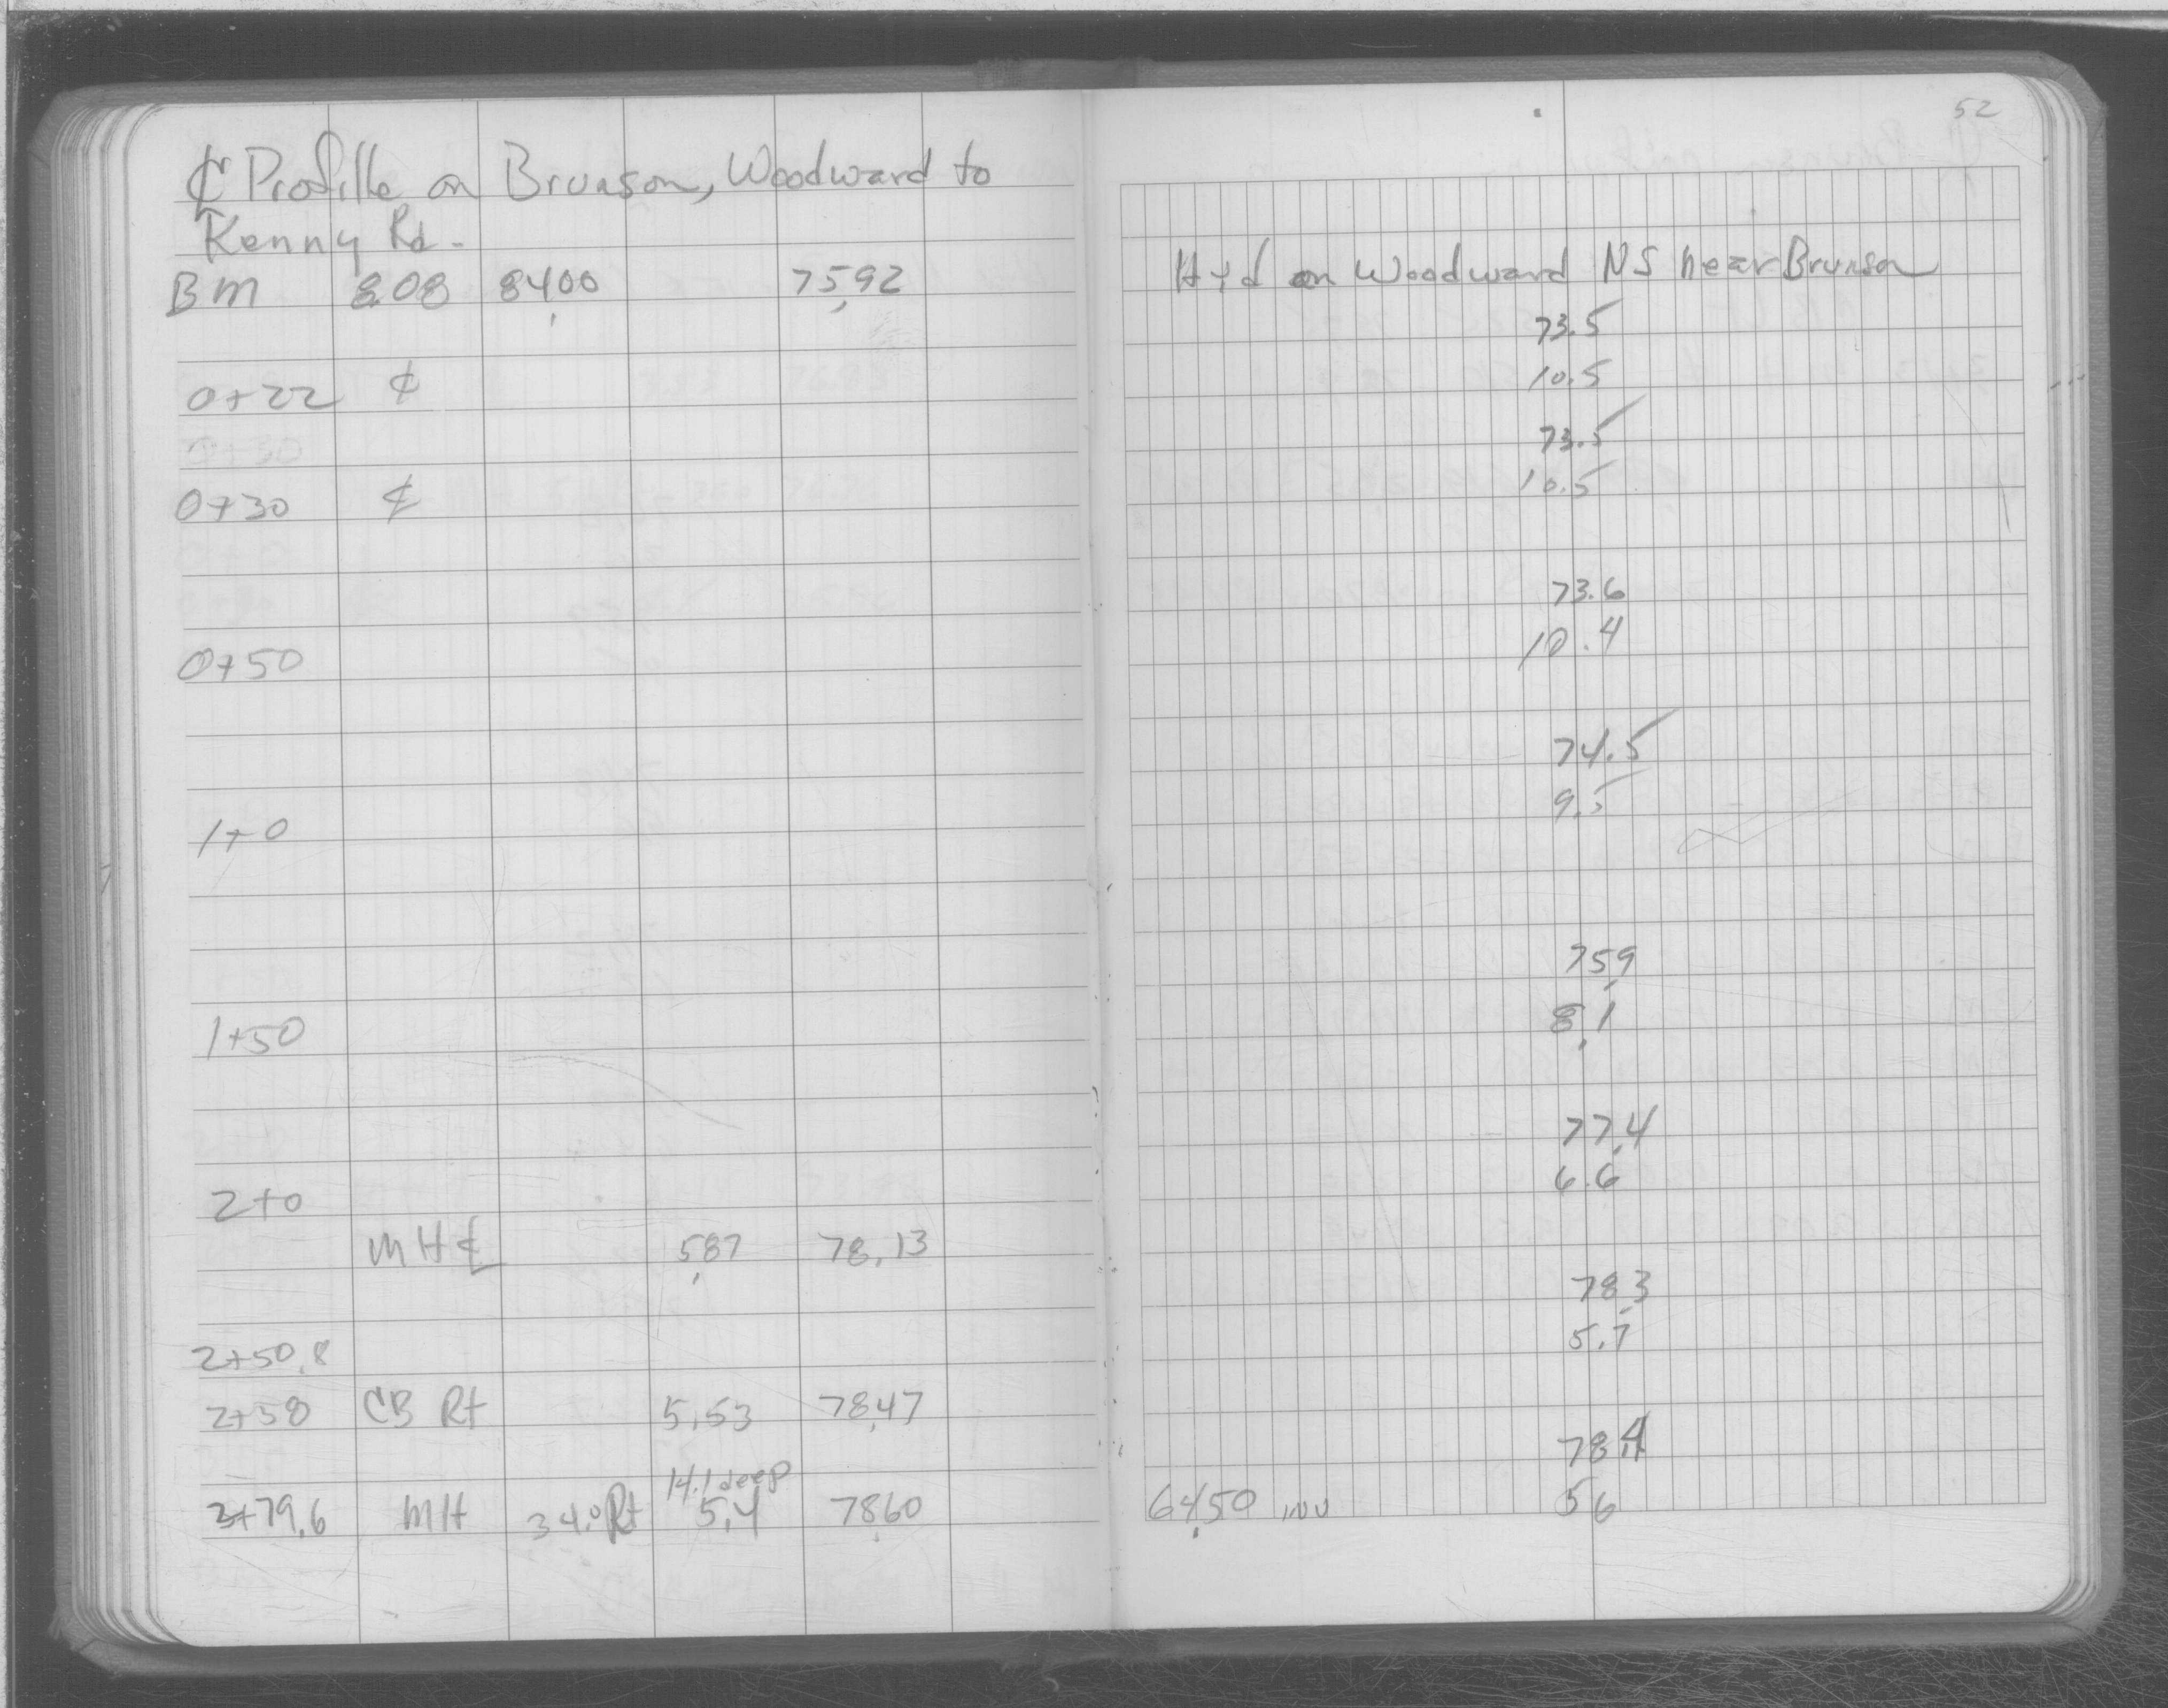 52
₵ Profille on Brunson, Woodward to
Kenny Rd.
BM 8.08 84.00 75.92 Hyd on Woodward NS near Brunson
73.5
0+22 ₵ 10.5
0+30 73.5
0+30 ₵ 10.5
73.6
0+50 10.4
74.5
1+0 9.5
75.9
1+50 8.1
77.4
2+0 6.6
MH ₵ 5.87 78.13
78.3
2+50.8 5.7
2+58 CB Rt 5.53 78.47
78.4
14.1 deep
3+79.6 MH 34.0 Rt 5.4 78.60 64.50 inv 5.6